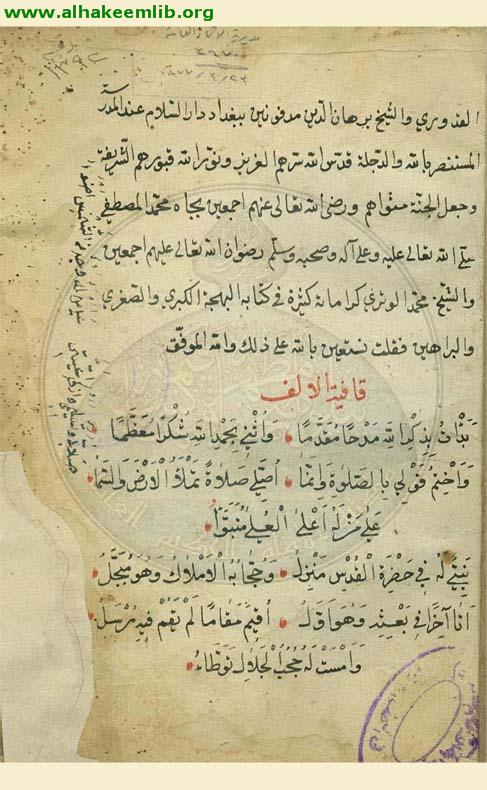 www.alhakeemlib.org
القدوري والشيخ برهان الدين مدفونين ببغداد دار السلام عند المدر
المستنصر بالله والدجلة قدس الله سرهم العزيز ونور الله قبورهم الشريفة
وجعل الجنة مثواهم ورضى الله تعالى عنهم اجمعين بجاه محمد المصطفى
صلى الله تعالى عليه وعلى آله وصحبه وسلم رضوان الله تعالى عليهم اجمعين
والشيخ محمد الوتري كراماته كثيرة في كتابه البهجة الكبرى والصغرى
والبراهين فقلت نستعين بالله على ذلك والله الموفق
قافية الالف
بَدَأْتُ بِذِكْرِ اللهِ مَدْحًا مُقَدَّمًا وَاُثْنِي بِحَمْدِ اللهِ شُكْرًا مُعَظَّمًا
وَاَخْتِمُ قَوْلِي بِالصَّلٰوةِ وَاِنَّمَا اُصَلِّي صَلَاةً تَمْلَأُ الْاَرْضَ وَالسَّمَا
عَلٰى مَنْ لَهُ اَعْلَى الْعُلٰى مُتَبَوَّأُ
نَبِيٌّ لَهُ فِي حَضْرَةِ الْقُدْسِ مَنْزِلُ وَحُجَّابُهُ الْاَمْلَاكُ وَهُوَ مُبَجَّلُ
اَتَانَا آخِرًا فِي بَعْثِهِ وَهُوَ اَوَّلُ اُقِيمَ مَقَامًا لَمْ يَقُمْ فِيهِ مُرْسَلُ
وَاَمْسَتْ لَهُ حُجُبُ الْجَلَالِ تَوَطَّأُ